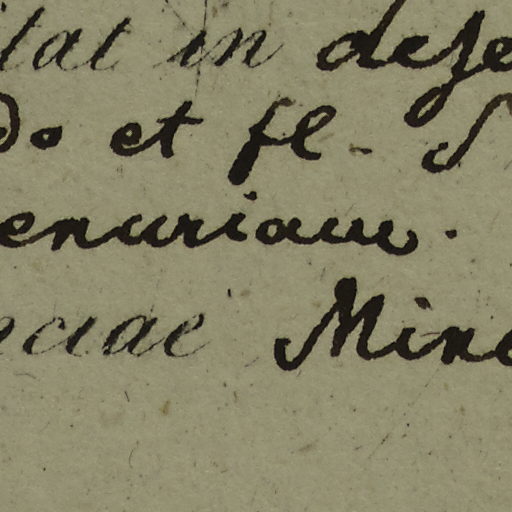 itat in dese
do et fl. S
enuriam.
eciae Mine